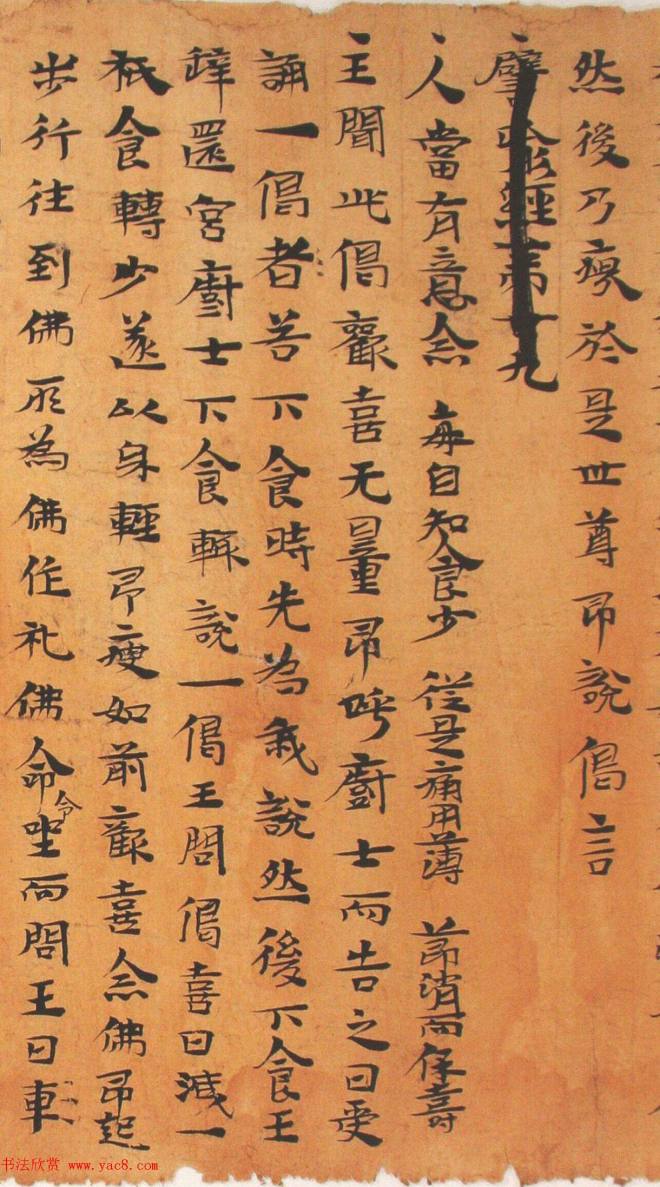 然後乃瘳於是世尊即說偈言
譬喻經第廿九
人當有意念 每自知食少 從是痛用薄 節消而保壽
王聞此偈歡喜无量即呼廚士而告之曰受
誦一偈者若下食時先為我說然後下食王
辭還宮廚士下食輙說一偈王問偈喜日減一
柢食轉少遂以身輕即瘦如前歡喜念佛即起
步行往到佛所為佛作礼佛命令坐而問王曰車
书法欣赏 www.yac8.com